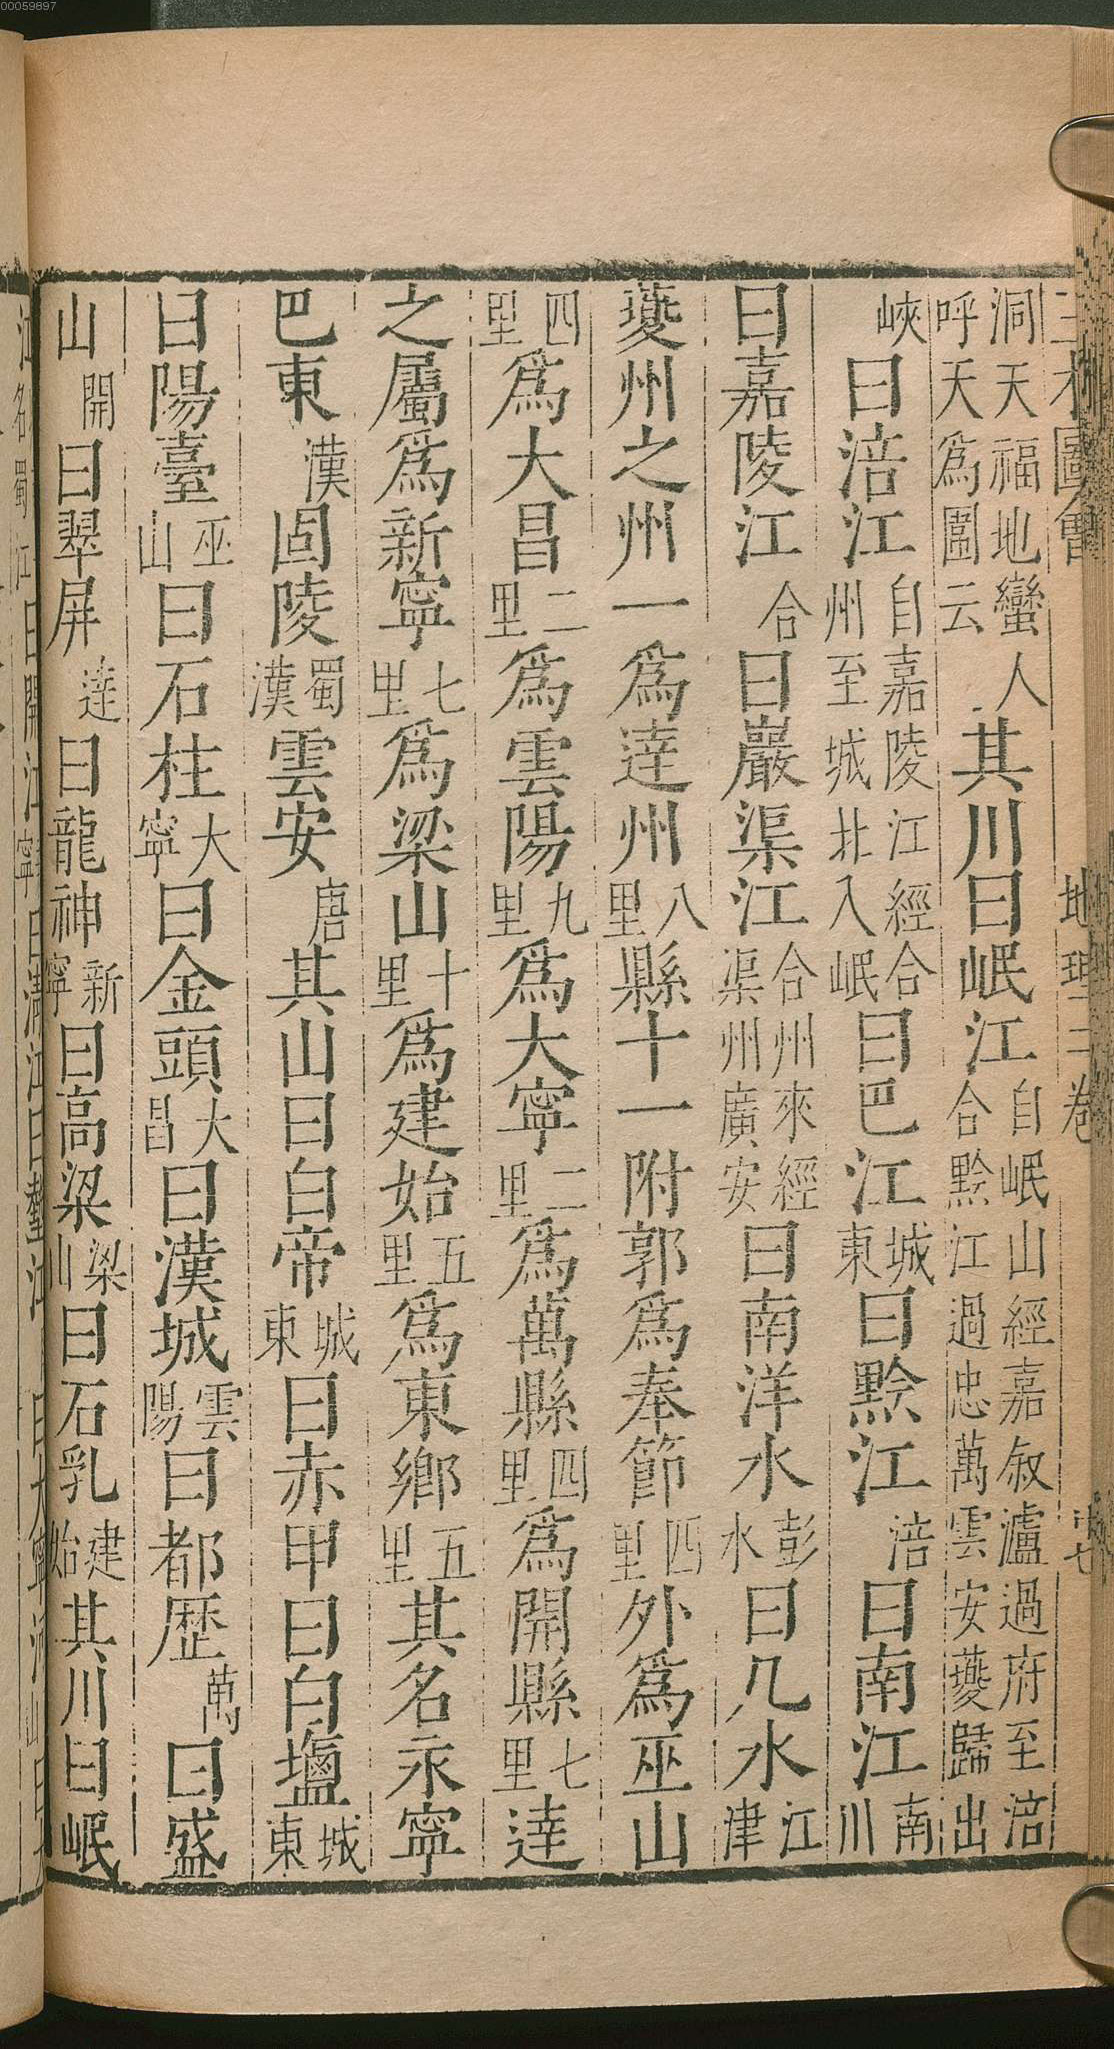 00059897
三才圖會 地理三卷 十七
洞天福地蠻人呼天爲圖云其川曰岷江自岷山經嘉叙瀘過府至涪合黔江過忠萬雲安夔歸出
峽曰涪江自嘉陵江經合州至城北入岷曰巴江城東曰黔江涪曰南江南川
曰嘉陵江合曰巖渠江合州來經渠州廣安曰南洋水彭水曰几水江津
夔州之州一爲達州八里縣十一附郭爲奉節四里外爲巫山
四里爲大昌二里爲雲陽九里爲大寧二里爲萬縣四里爲開縣七里達
之屬爲新寧七里爲梁山十里爲建始五里爲東鄉五里其名永寧
巴東漢固陵蜀漢雲安唐其山曰白帝城東曰赤甲曰白塩城東
曰陽臺巫山曰石柱大寧曰金頭大昌曰漢城雲陽曰都歷萬曰盛
山開曰翠屏達曰龍神新寧曰高梁梁川曰石乳建始其川曰岷